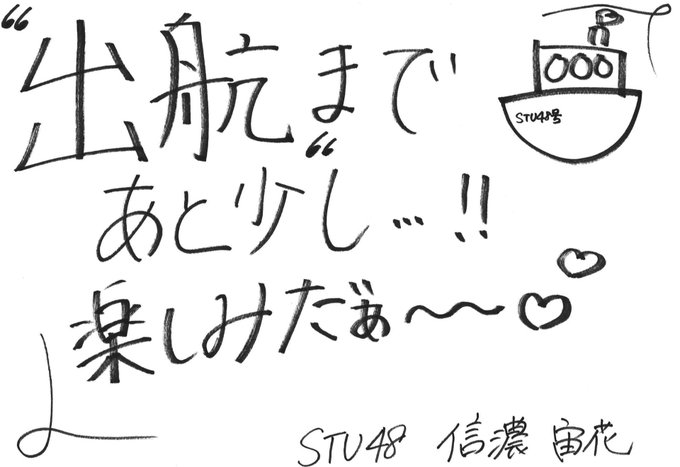 “出航“まで
STU48号
あと少し…!!
楽しみだぁ〜〜♡♡
STU48 信濃 宙花